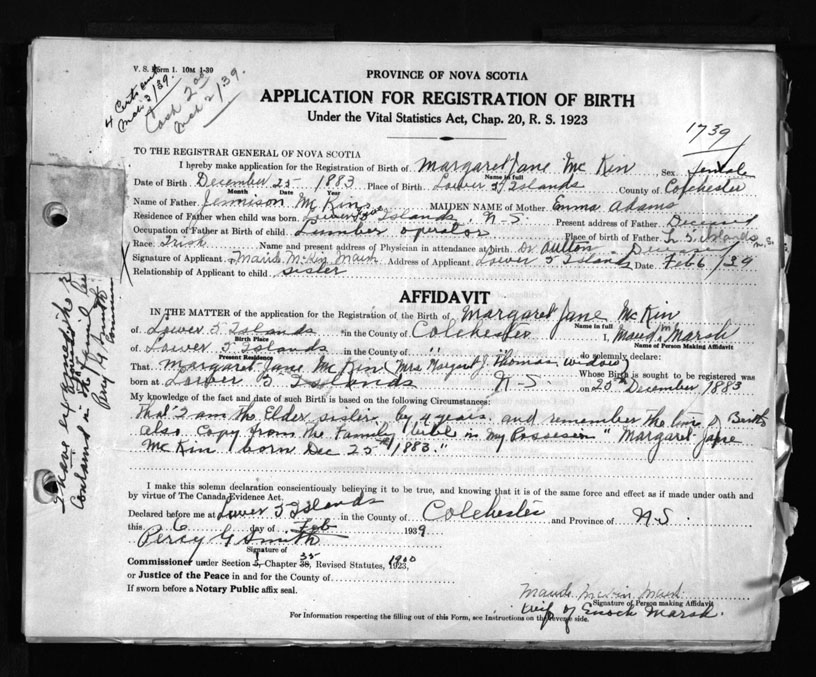 V. S. Form 1. 10M 1-39
4 Certs
Mar 2/39.
Cash 2 00
Mar 2/39.
PROVINCE OF NOVA SCOTIA
APPLICATION FOR REGISTRATION OF BIRTH
Under the Vital Statistics Act, Chap. 20, R. S. 1923
1739
TO THE REGISTRAR GENERAL OF NOVA SCOTIA
I hereby make application for the Registration of Birth of Margaret Jane Mc Kin, Sex female
Name in full
Date of Birth December 25 - 1883 Place of Birth Lower 5 Islands County of Colchester
Month Date Year
Name of Father Jemmison Mc Kin MAIDEN NAME of Mother Emma Adams
Residence of Father when child was born Lower Five Islands, N-S. Present address of Father Deceased
Occupation of Father at Birth of child Lumber operator Place of birth of Father L 5 Islands N. S.
Race Irish Name and present address of Physician in attendance at birth Dr Deceased
Signature of Applicant Maud McKin Marsh Address of Applicant Lower 5 Islands Date Feb 6/39
Relationship of Applicant to child sister
AFFIDAVIT
IN THE MATTER of the application for the Registration of the Birth of Margaret Jane Mc Kin
Name in full
of Lower 5 Islands in the County of Colchester I, Maud M Marsh
Birth Place Name of Person Making Affidavit
of Lower 5 Islands " " do solemnly declare:
Present Residence
That Margaret Jane Mc Kin (Mrs Margaret J. Thomas widow) Whose Birth is sought to be registered was
born at Lower 5 Islands N-S. on 25th December 1883
My knowledge of the fact and date of such Birth is based on the following Circumstances:
That I am the Elder sister by 4 years and remember the time of Birth
also Copy from the Family bible in my Possession "Margaret Jane
Mc Kin born Dec 25th 1883."
I make this solemn declaration conscientiously believing it to be true, and knowing that it is of the same force and effect as if made under oath and
by virtue of The Canada Evidence Act.
Declared before me at Lower 5 Islands in the County of Colchester and Province of N.S.
this 6 day of Feb 1939
Percy G Smith
Signature of
Commissioner under Section 1, Chapter 38, 35 Revised Statutes, 1923, 1900
or Justice of the Peace in and for the County of
If sworn before a Notary Public affix seal.
Maud McKin Marsh
Signature of Person making Affidavit
Wife of Enoch Marsh.
For Information respecting the filling out of this Form, see Instructions on the reverse side.
I have examined the
contained in the family
Percy G Smith